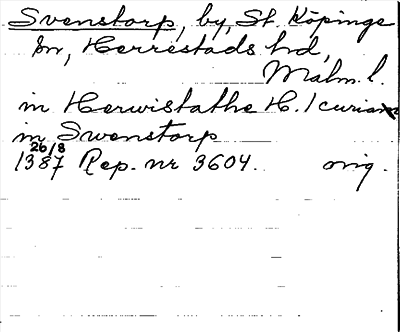 Svenstorp, by, St. Köpinge
sn, Herrestads hd,
Malm. l.
in Herwistathe H. 1 curiam
in Swenstorp
26/8
1387 Rep. nr 3604. orig.